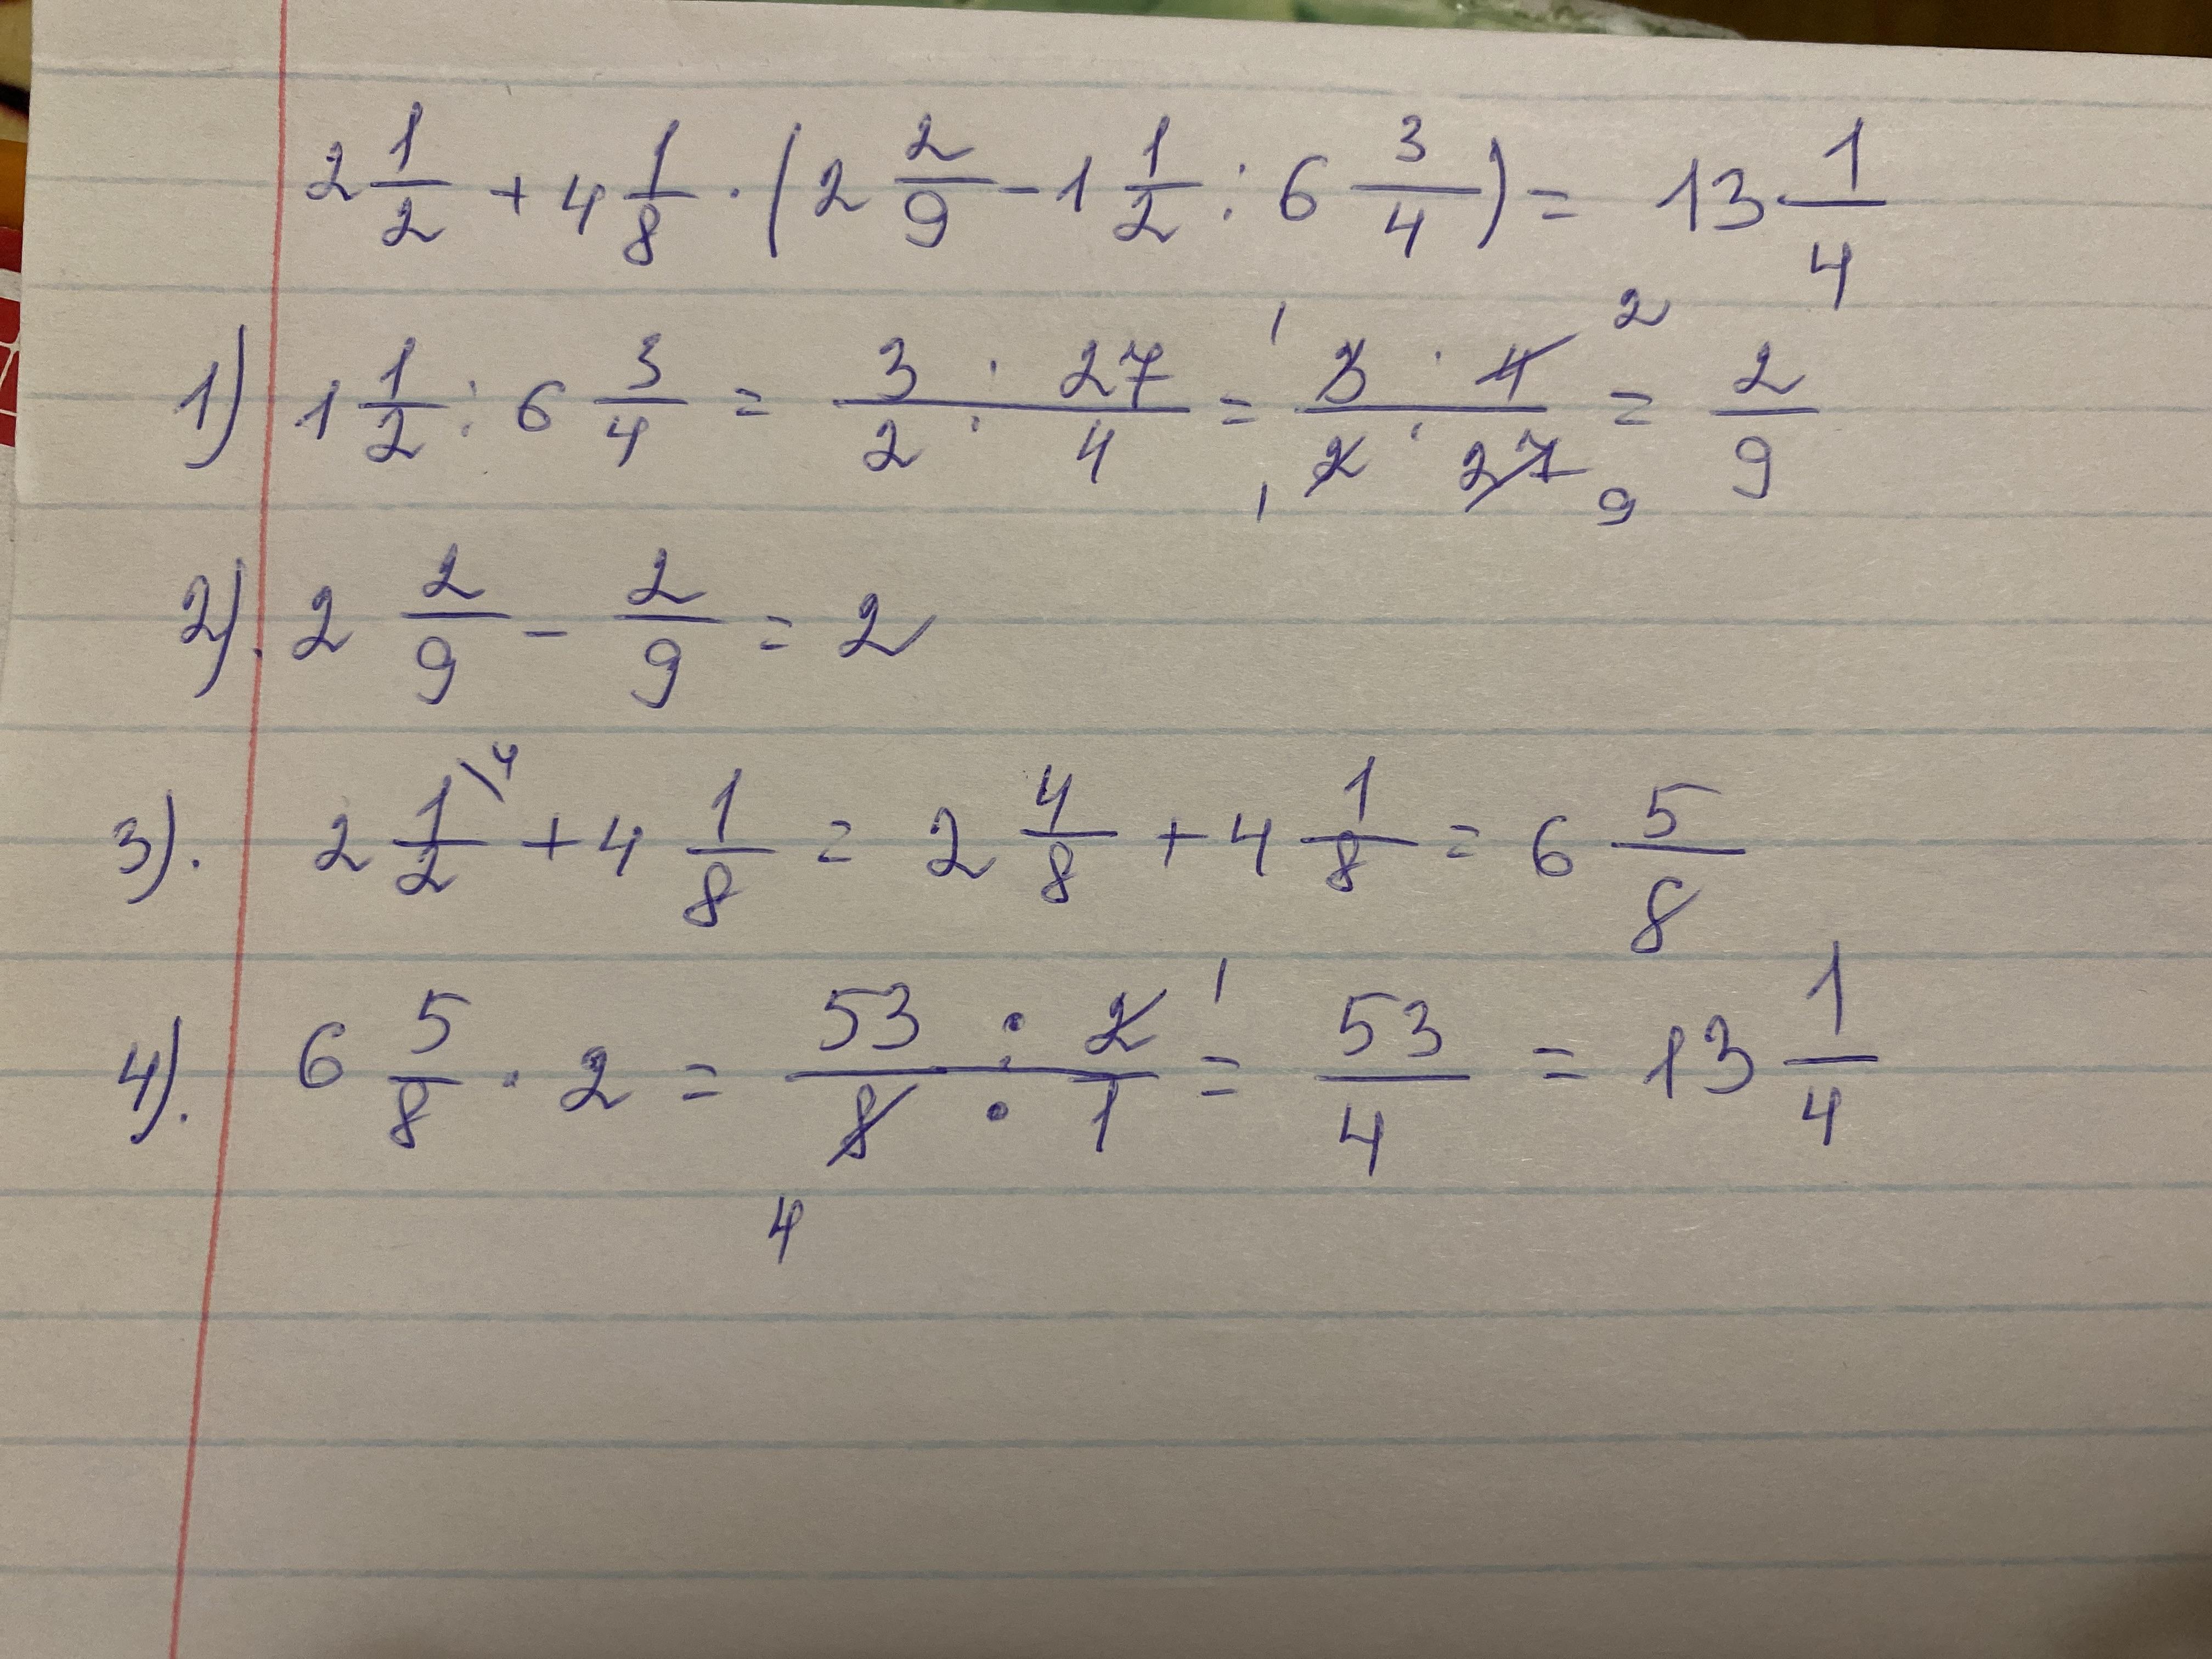 2 1/2 + 4 1/8 · (2 2/9 - 1 1/2 : 6 3/4) = 13 1/4
1) 1 1/2 : 6 3/4 = 3/2 : 27/4 = 3 · 4 / 2 · 27 = 2/9
2). 2 2/9 - 2/9 = 2
3). 2 1/2 \4 + 4 1/8 = 2 4/8 + 4 1/8 = 6 5/8
4). 6 5/8 · 2 = 53/8 : 2/1 = 53/4 = 13 1/4